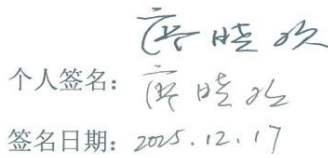 廖晓欢
个人签名：廖晓欢
签名日期：2025.12.17